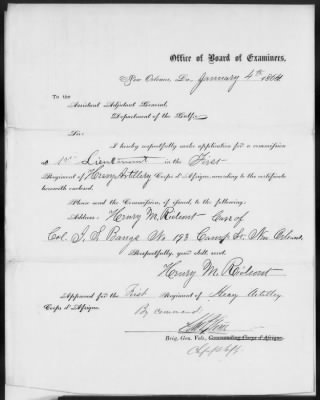 Office of Board of Examiners,
New Orleans, La., January 4th 1864
To the
Assistant Adjutant General,
Department of the Gulf:
Sir:
I hereby respectfully make application for a commission
as 1st Lieutenant in the First
Regiment of Heavy Artillery Corps d'Afrique, according to the certificate
herewith enclosed.
Please send the Commission, if issued, to the following:
Address: Henry M. Rideout Care of
Col. I. S. Bangs No 193 Camp St. New Orleans.
Respectfully, your obdt. servt.
Henry M. Rideout
Approved for the First Regiment of Heavy Artillery
Corps d'Afrique.
By command
Brig. Gen. Vols., Commanding Corps d'Afrique.